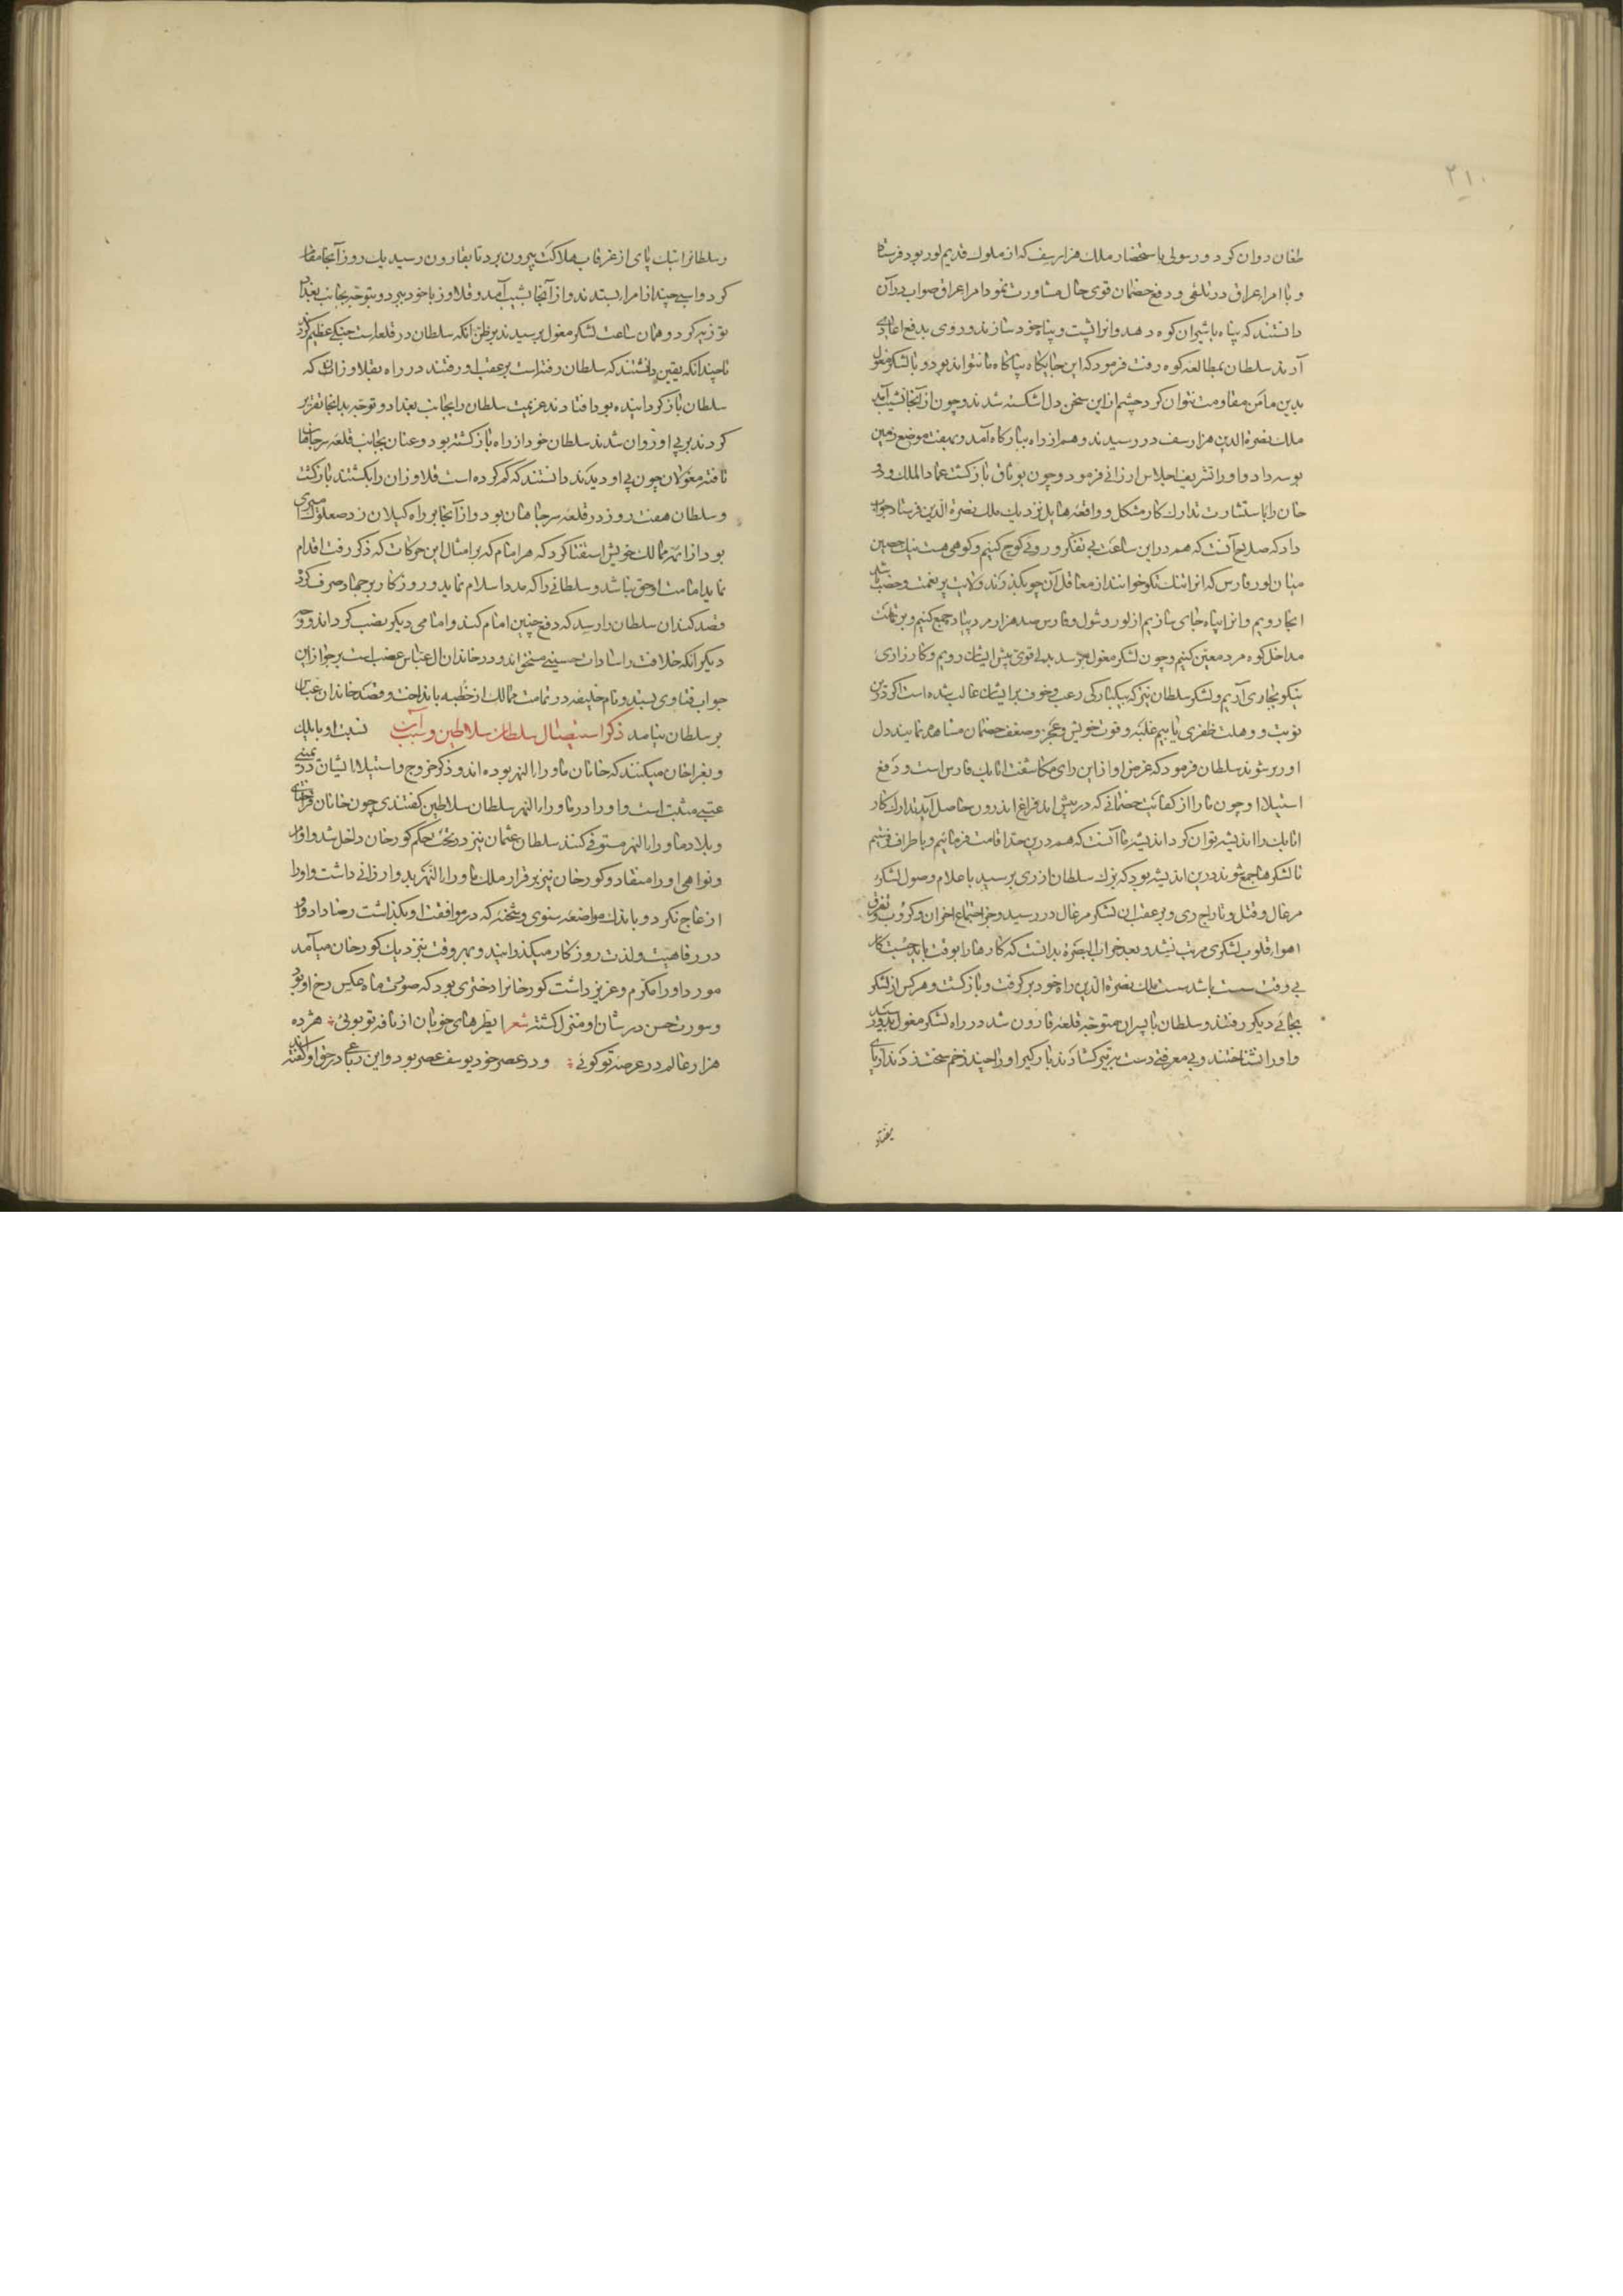 ۲۱۰
طغان روان کرد و رسولی باستحضار ملک هزارسف که از ملوک قدیم لور بود فرستاد
و با امراء عراق در تلقی و دفع خصمان قوی حال مشاورت نمود امراء عراق صواب در آن
دانستند که پناه با شیران کوه دهد و انرا پشت و پناه خود سازند و روی بدفع اعادی
آرند سلطان بمطالعه کوه رفت فرمود که این جایگاه پناگاه ما نتواند بود و با لشکر مغول
بدین مامن مقاومت نتوان کرد حشم از این سخن دل اشکسته شدند و چون از آنجا نشیب آمد
ملک نصرة الدین هزارسف در رسیدند و هم از راه ببارگاه آمد و بهفت موضع زمین
بوسه داد و او را تشریف اجلاس ارزانی فرمود و چون بوثاق باز گشت عماد الملک و
خان را باستشارت تدارک کار مشکل و واقعه هایل نزدیک ملک نصرة الدین فرستاد جواب
داد که صلاح آنست که هم در این ساعت بی تفکر و رویی کوچ کنیم و کوهی هست نیک حصین
میان لور و فارس که انرا تنک تکو خوانند از معاقل آن چو بگذرند ولایت پر نعمت و خصب باشد
انجا رویم و انرا پناه جای سازیم از لور و شول و فارس صد هزار مرد پیاده جمع کنیم و بر تمامت
مداخل کوه مرد معین کنیم و چون لشکر مغول برسد بدلی قوی پیش ایشان رویم و کارزاری
نیکو بجای آریم و لشکر سلطان نیز که بیکبارگی رعب و خوف بر ایشان غالب شده است اگر درین
نوبت و وهلت ظفری یابیم غلبه و قوت خویش و عجز و ضعف خصمان مشاهده نمایند دل
اور برشوند سلطان فرمود که غرض او از این رای مکاشفت اتابک فارس است و دفع
استیلا او چون ما را از کفایت خصمانی که در پیش اند فراغ اندرون حاصل آید تدارک کار
اتابک را اندیشه توان کرد اندیشه ما آنست که هم درین حد اقامت فرمائیم و باطراف فرستیم
تا لشکرها جمع شوند درین اندیشه بود که یزک سلطان از ری برسید با علام وصول لشکر
مرغال و قتل و تاراج ری و بر عقب ان لشکر مرغال در رسید و جز اجتماع احزان و کروب و تفرق
اهواء قلوب لشکری مرتب نشد و بعد خراب البصره بدانست که کارها را بوقت باید جست کار
بی وقت سست باشد سست ملک نصرة الدین راه خود بر گرفت و باز گشت و هر کس از لشکر
بجائی دیگر رفتند و سلطان با پسران متوجه قلعه قارون شد در راه لشکر مغول بدو رسید
و او را نشناختند و بی معرفتی دست بر تیر گشادند بارگیر او را چند زخم سخت زدند از پای
و سلطانرا تنک پای از غرقاب هلاکت بیرون برد تا بقارون رسید یک روز آنجا مقام
کرد و اسبی چند از امراء بستدند و از آنجا بشیب آمد و قلاوز با خود ببرد و بتوجه بجانب بغداد
توزیه کرد و همان ساعت لشکر مغول برسیدند بر ظن آنکه سلطان در قلعه است جنکی عظیم کردند
تا چندانکه یقین دانستند که سلطان رفته است بر عقب او رفتند در راه بقلاوزانی که
سلطان باز گردانیده بود افتادند عزیمت سلطان را بجانب بغداد و توجه بدانجا تقریر
کردند بر پی او روان شدند سلطان خود از راه باز گشته بود و عنان بجانب قلعه سرجاهان
تافته مغولان چون پی او دیدند دانستند که گم کرده است قلاوزان را بکشتند باز گشتند
و سلطان هفت روز در قلعه سرجاهان بود و از آنجا بر راه گیلان زد صعلوک امیری
بود از ائمه ممالک خویش استفتا کرد که هر امام که بر امثال این حرکات که ذکر رفت اقدام
نماید امامت او حق نباشد و سلطانی را که مدد اسلام نماید و روزگار بر جهاد صرف کرده
قصد کند ان سلطان را رسد که دفع چنین امام کند و امامی دیگر نصب گرداند و وجه
دیگر انکه خلافت را سادات حسینی مستحق اند و در خاندان ال عباس غصب است بر جواز این
جواب فتاوی بستد و نام خلیفه در تمامت ممالک از خطبه بانداخت و قصد خاندان عباس
بر سلطان نیامد ذکر استیصال سلطان سلاطین و سبب آن نسبت او بایلک
و بغراخان میکنند که خانان ماوراءالنهر بوده اند و ذکر خروج و استیلاء ایشان در یمینی
عتبی مثبت است و او را در ماوراءالنهر سلطان سلاطین گفتندی چون خانان قراختای
و بلاد ماوراءالنهر مستوفی کنند سلطان عثمان نیز در تحت حکم کورخان داخل شد و اوامر
و نواهی او را منقاد و کورخان نیز بر قرار ملک ماوراءالنهر بدو ارزانی داشت و او را
ازعاج نکرد و باندک مواضعه سنوی و شحنه که در موافقت او بگذاشت رضا داد و او
در رفاهیت و لذت روزگار میگذرانید و بهر وقت بنزدیک کورخان میآمد
مورد او را مکرم و عزیز داشت کورخانرا دختری بود که صورت ماه عکس رخ او بود
و سورت حسن در شان او منزل گشته شعر ایطرهای خوبان از نافه تو بوئی هژده
هزار عالم در عرصه تو کوئی و در عصر خود یوسف عصر بود و این رباعی در حق او گفته اند